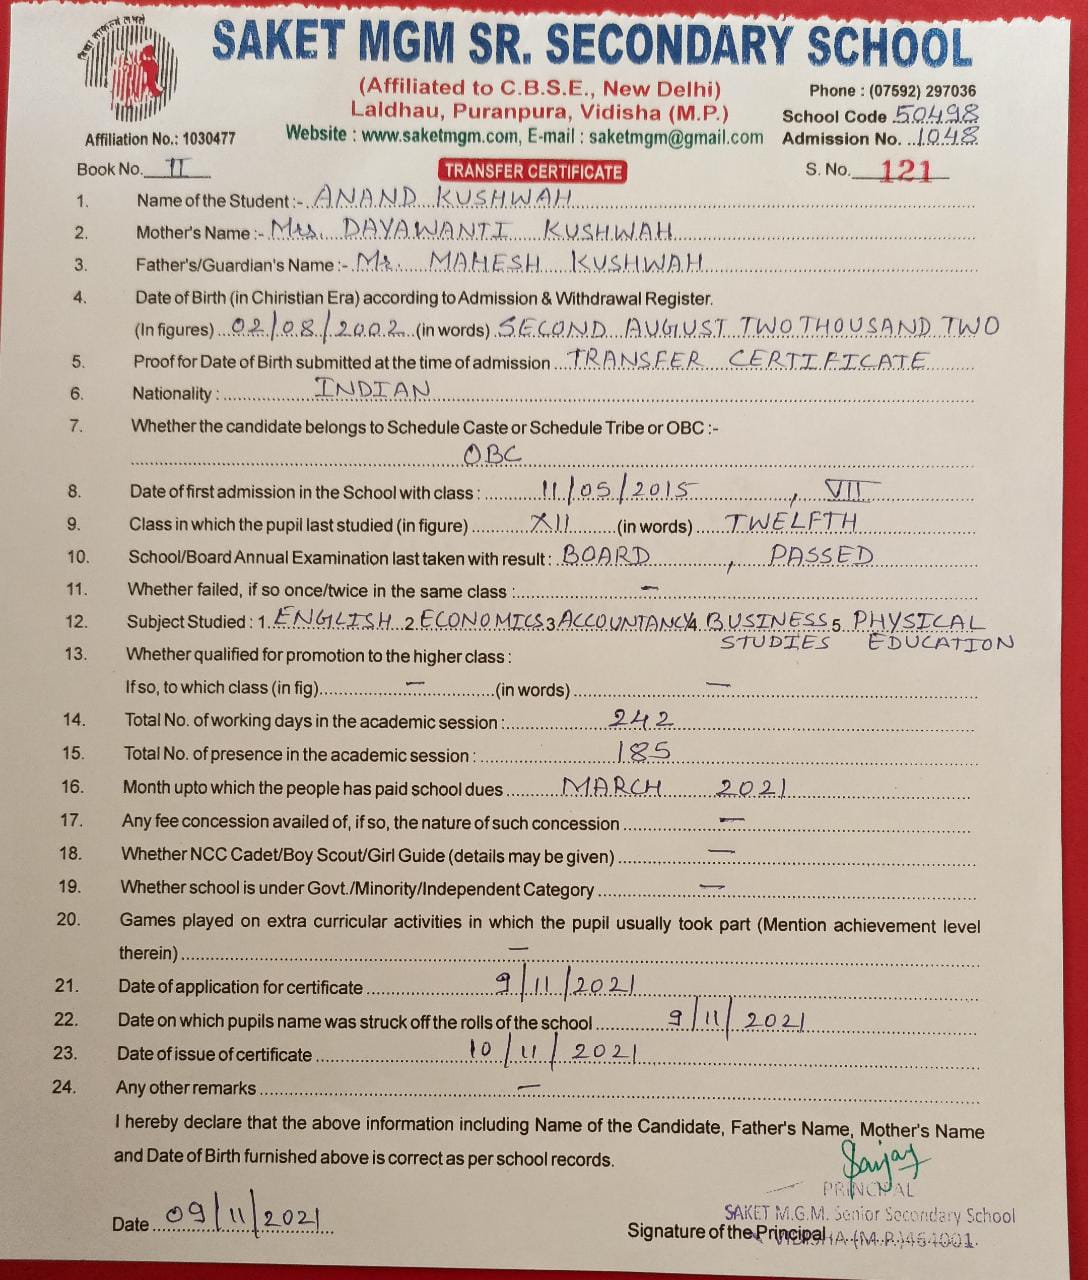 SAKET MGM SR. SECONDARY SCHOOL
(Affiliated to C.B.S.E., New Delhi)
Phone : (07592) 297036
Laldhau, Puranpura, Vidisha (M.P.)
School Code 50498
Affiliation No.: 1030477
Website : www.saketmgm.com, E-mail : saketmgm@gmail.com
Admission No. 1048
Book No. II
TRANSFER CERTIFICATE
S. No. 121
1. Name of the Student :- ANAND KUSHWAH
2. Mother's Name :- Mrs. DAYAWANTI KUSHWAH
3. Father's/Guardian's Name :- Mr. MAHESH KUSHWAH
4. Date of Birth (in Chiristian Era) according to Admission & Withdrawal Register.
(In figures) 02/08/2002 (in words) SECOND AUGUST TWO THOUSAND TWO
5. Proof for Date of Birth submitted at the time of admission TRANSFER CERTIFICATE
6. Nationality : INDIAN
7. Whether the candidate belongs to Schedule Caste or Schedule Tribe or OBC :-
OBC
8. Date of first admission in the School with class : 11/05/2015, VII
9. Class in which the pupil last studied (in figure) XII (in words) TWELFTH
10. School/Board Annual Examination last taken with result : BOARD, PASSED
11. Whether failed, if so once/twice in the same class : —
12. Subject Studied : 1. ENGLISH 2 ECONOMICS 3 ACCOUNTANCY 4. BUSINESS 5 PHYSICAL
STUDIES EDUCATION
13. Whether qualified for promotion to the higher class :
If so, to which class (in fig) — (in words) —
14. Total No. of working days in the academic session : 242
15. Total No. of presence in the academic session : 185
16. Month upto which the people has paid school dues MARCH 2021
17. Any fee concession availed of, if so, the nature of such concession —
18. Whether NCC Cadet/Boy Scout/Girl Guide (details may be given) —
19. Whether school is under Govt./Minority/Independent Category —
20. Games played on extra curricular activities in which the pupil usually took part (Mention achievement level
therein) —
21. Date of application for certificate 9/11/2021
22. Date on which pupils name was struck off the rolls of the school 9/11/2021
23. Date of issue of certificate 10/11/2021
24. Any other remarks —
I hereby declare that the above information including Name of the Candidate, Father's Name, Mother's Name
and Date of Birth furnished above is correct as per school records.
PRINCIPAL
SAKET M.G.M. Senior Secondary School
Date 09/11/2021
Signature of the Principal
(M.P.) 464001.